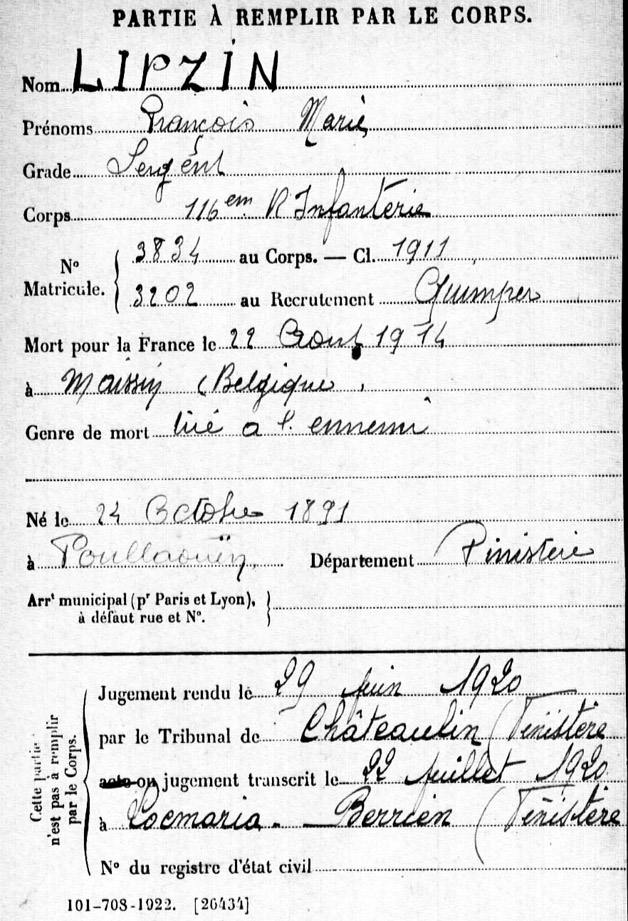 PARTIE À REMPLIR PAR LE CORPS.
Nom LIPZIN
Prénoms François Marie
Grade Sergent
Corps 116em R Infanterie
N° Matricule. 3834 au Corps. — Cl. 1911
3202 au Recrutement Quimper
Mort pour la France le 22 Aout 1914
à Maissin (Belgique
Genre de mort tué a l'ennemi
Né le 24 Octobre 1891
à Poullaouën Département Finistère
Arrt municipal (pr Paris et Lyon),
à défaut rue et N°.
Cette partie n'est pas à remplir par le Corps.
Jugement rendu le 29 juin 1920
par le Tribunal de Châteaulin (Finistère
acte ou jugement transcrit le 22 juillet 1920
à Locmaria - Berrien (Finistère
N° du registre d'état civil
101-708-1922. [26434]